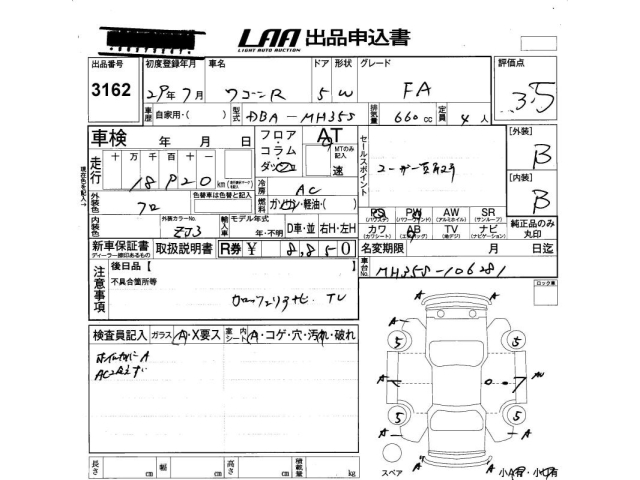 LAA 出品申込書
LIGHT AUTO AUCTION
出品番号 初度登録年月 車名 ドア 形状 グレード 評価点
3162 29年7月 ワゴンR 5 W FA 3.5
車歴 自家用・( ) 型式 DBA-MH35S 排気量 660cc 定員 4人
車検 年 月 日 フロア・コラム・ダッシュ AT MTのみ記入 速 セールスポイント [外装] B
走行 十 万 千 百 十 一
18920km
冷房 AC
[内装] B
外装色 クロ 色替車は色替と記入 燃料 ガソリン・軽油・( )
外装カラーNo. ZJ3 輸入車 モデル年式 年・不明 D車・並 右H・左H
PS PW AW SR
(パワステ) (パワーウィンド) (アルミホイル) (サンルーフ)
カワ AB TV ナビ
(カワシート) (エアバッグ) (地デジ) (ナビゲーション)
純正品のみ丸印
新車保証書 取扱説明書 R券 ¥ 8,850 名変期限 月 日迄
ディーラー捺印あるもの
車台No. MH35S-106281
注意事項 後日品【
不具合箇所等
TV
ロック車
検査員記入 ガラス A・X要ス 室内シート A・コゲ・穴・汚れ・破れ
A
A A
A
5 5
A
5 5
A A
A A
スペア
長さ cm 幅 cm 高さ cm 積載量 kg
小A有・小U有